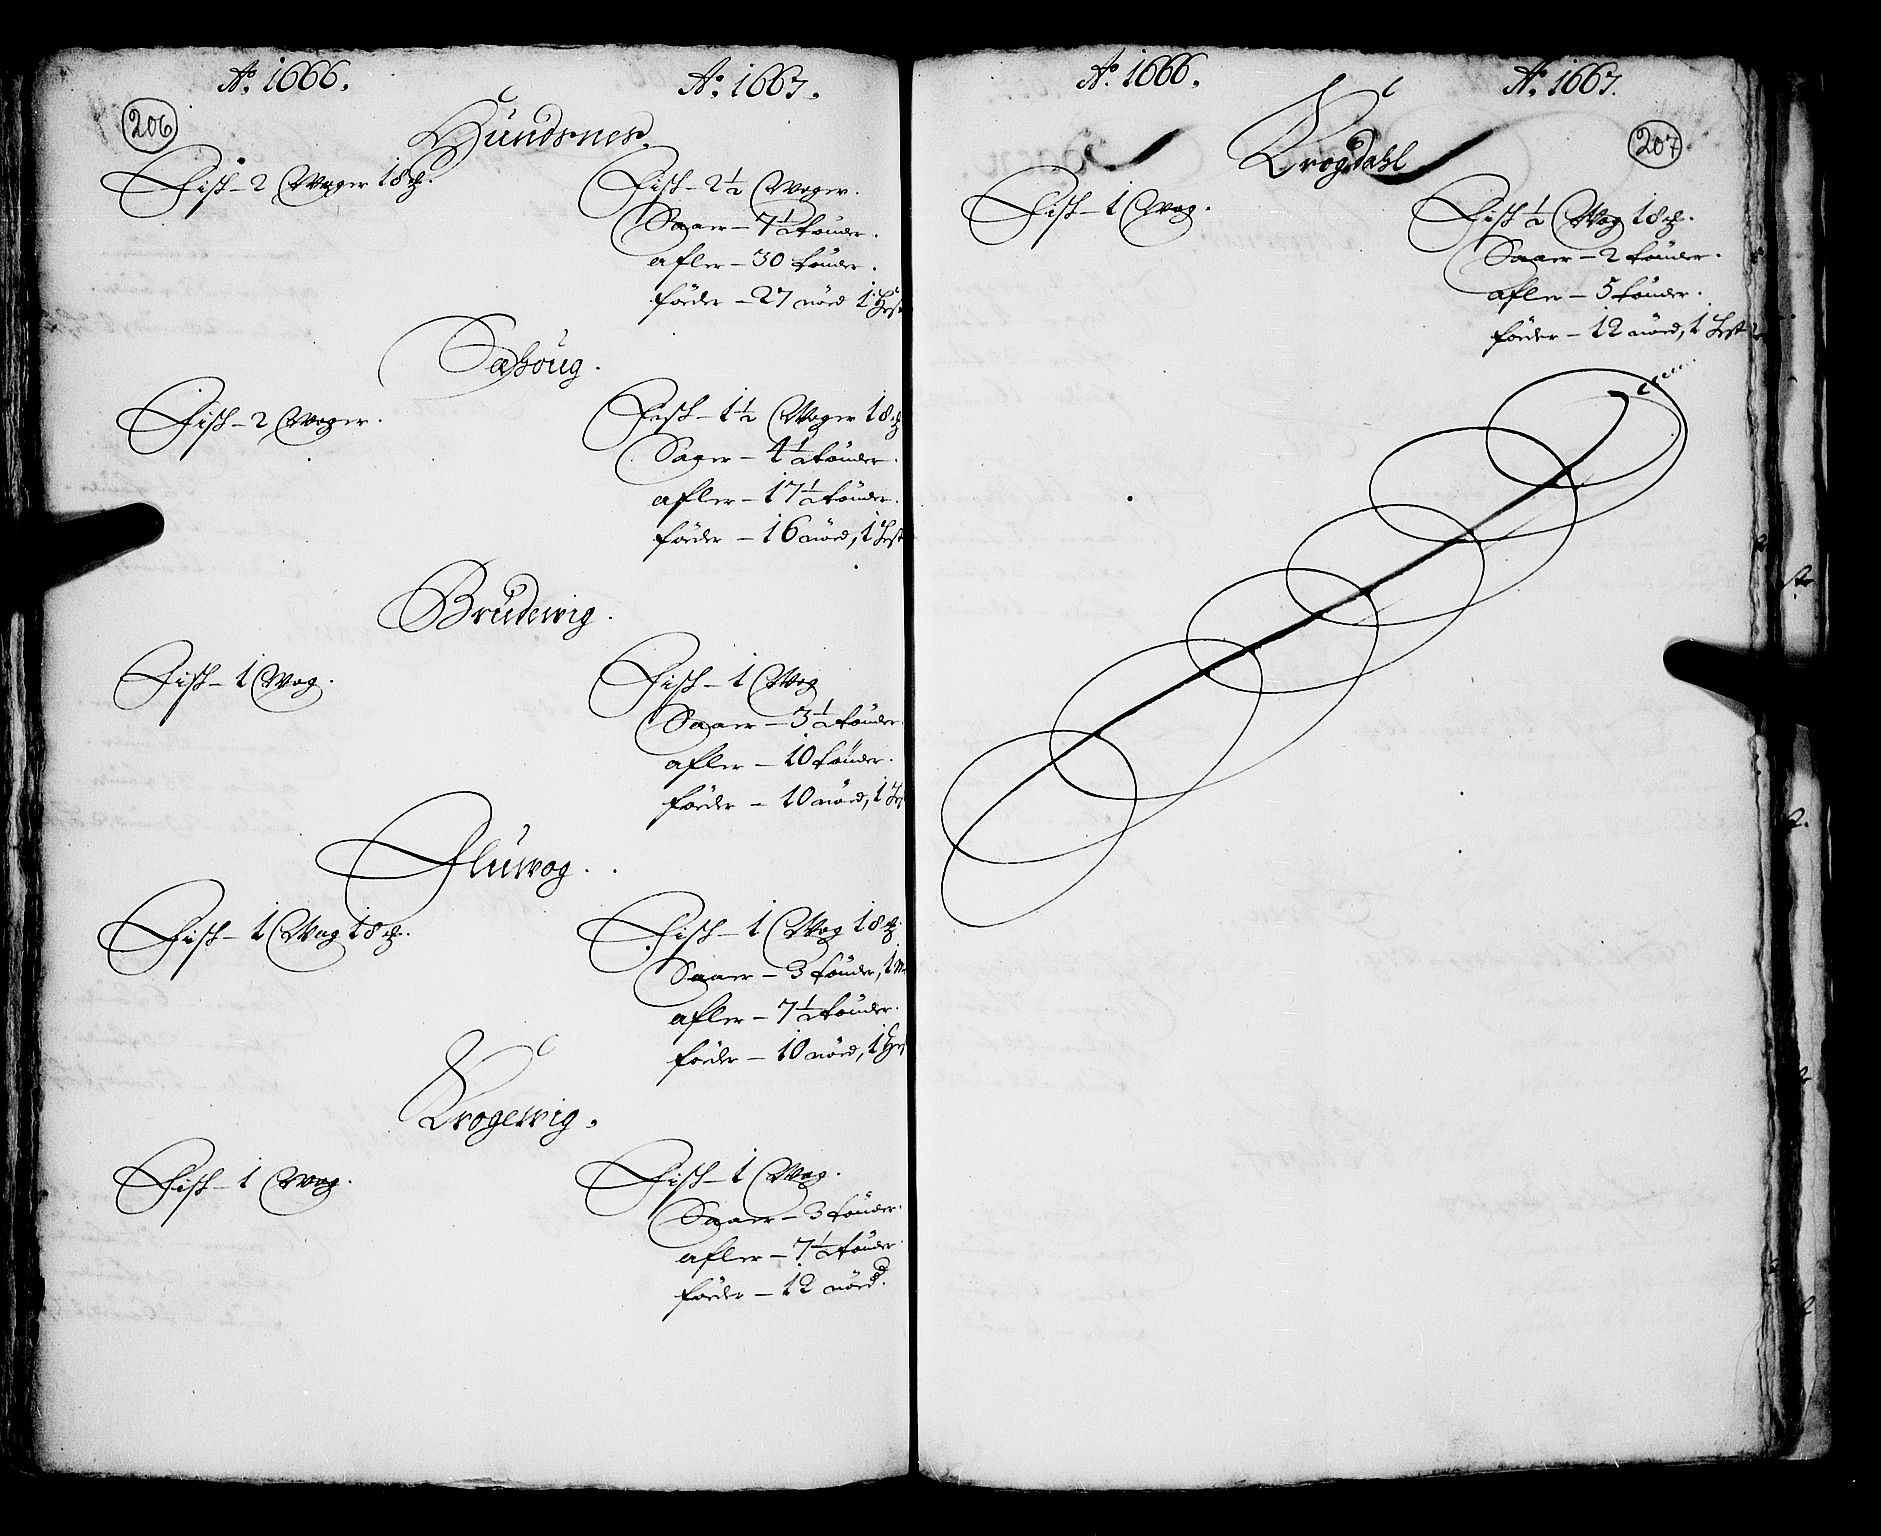 Aº. 1666. Aº. 1667.
206
Hundsnes.
Fisk – 2 Woger 18 ℔.
Fisk – 2½ Woger.
Saaer – 7½ tønder.
afler – 30 tønder.
føder – 27 nød 1 Hest
Sæhoug.
Fisk – 2 Woger.
Fisk – 1½ Woger 18 ℔
Saaer – 4½ tønder.
afler – 17½ tønder.
føder – 16 nød, 1 Hest
Brudewig.
Fisk – 1 Wog.
Fisk – 1 Wog
Saaer – 3½ tønder.
afler – 10 tønder.
føder – 10 nød, 1 Hest
Fluwog.
Fisk – 1 Wog 18 ℔.
Fisk – 1 Wog 18 ℔.
Saaer – 3 tønder, 1
afler – 7½ tønder.
føder – 10 nød, 1 Hest
Krogewig.
Fisk – 1 Wog.
Fisk – 1 Wog.
Saaer – 3 tønder.
afler – 7½ tønder
føder – 12 nød.
Aº. 1666. Aº. 1667.
207
Krogdahl
Fisk – 1 Wog.
Fisk ½ Wog 18 ℔.
Saaer – 2 tønder.
afler – 5 tønder.
føder – 12 nød, 1 Hest